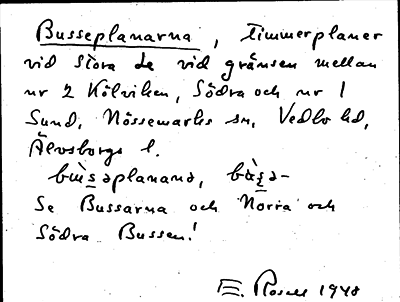 Busseplanarna, timmerplaner
vid Stora Le vid gränsen mellan
nr 2 Kölviken, Södra och nr 1
Sund, Nössemarks sn, Vedbo hd,
Älvsborgs l.
Se Bussarna och Norra och
Södra Bussen!
E. Rosell 1948